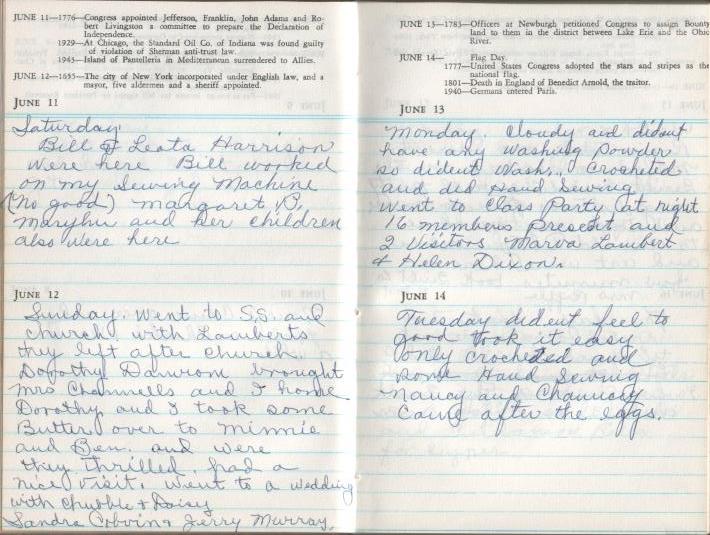 JUNE 11—1776—Congress appointed Jefferson, Franklin, John Adams and Ro-
bert Livingston a committee to prepare the Declaration of
Independence.
1929—At Chicago, the Standard Oil Co. of Indiana was found guilty
of violation of Sherman anti-trust law.
1943—Island of Pantelleria in Mediterranean surrendered to Allies.
JUNE 12—1665—The city of New York incorporated under English law, and a
mayor, five aldermen and a sheriff appointed.
JUNE 11
Saturday
Bill & Leata Harrison
were here Bill worked
on my Sewing Machine
(no good) Margaret D.
and her children
also were here
JUNE 12
Sunday. Went to S.S. and
church with Lamberts
they left after church.
Dorothy brought
Mrs and I home
Dorothy and I took some
Butter over to Minnie
and Ben. and were
they thrilled. had a
nice visit. went to a wedding
with Chubbie & Daisy
Sandra Jerry Murray.
JUNE 13—1783—Officers at Newburgh petitioned Congress to assign Bounty
land to them in the district between Lake Erie and the Ohio
River.
JUNE 14— Flag Day.
1777—United States Congress adopted the stars and stripes as the
national flag.
1801—Death in England of Benedict Arnold, the traitor.
1940—Germans entered Paris.
JUNE 13
Monday. Cloudy and dident
have any Washing Powder
so dident Wash. Crocheted
and did Hand Sewing
went to Class Party at night
16 members Present and
2 Visitors Marva Lambert
& Helen Dixon.
JUNE 14
Tuesday dident feel to
good took it easy
only crocheted and
some Hand Sewing
Nancy and Chauncey
came after the eggs.